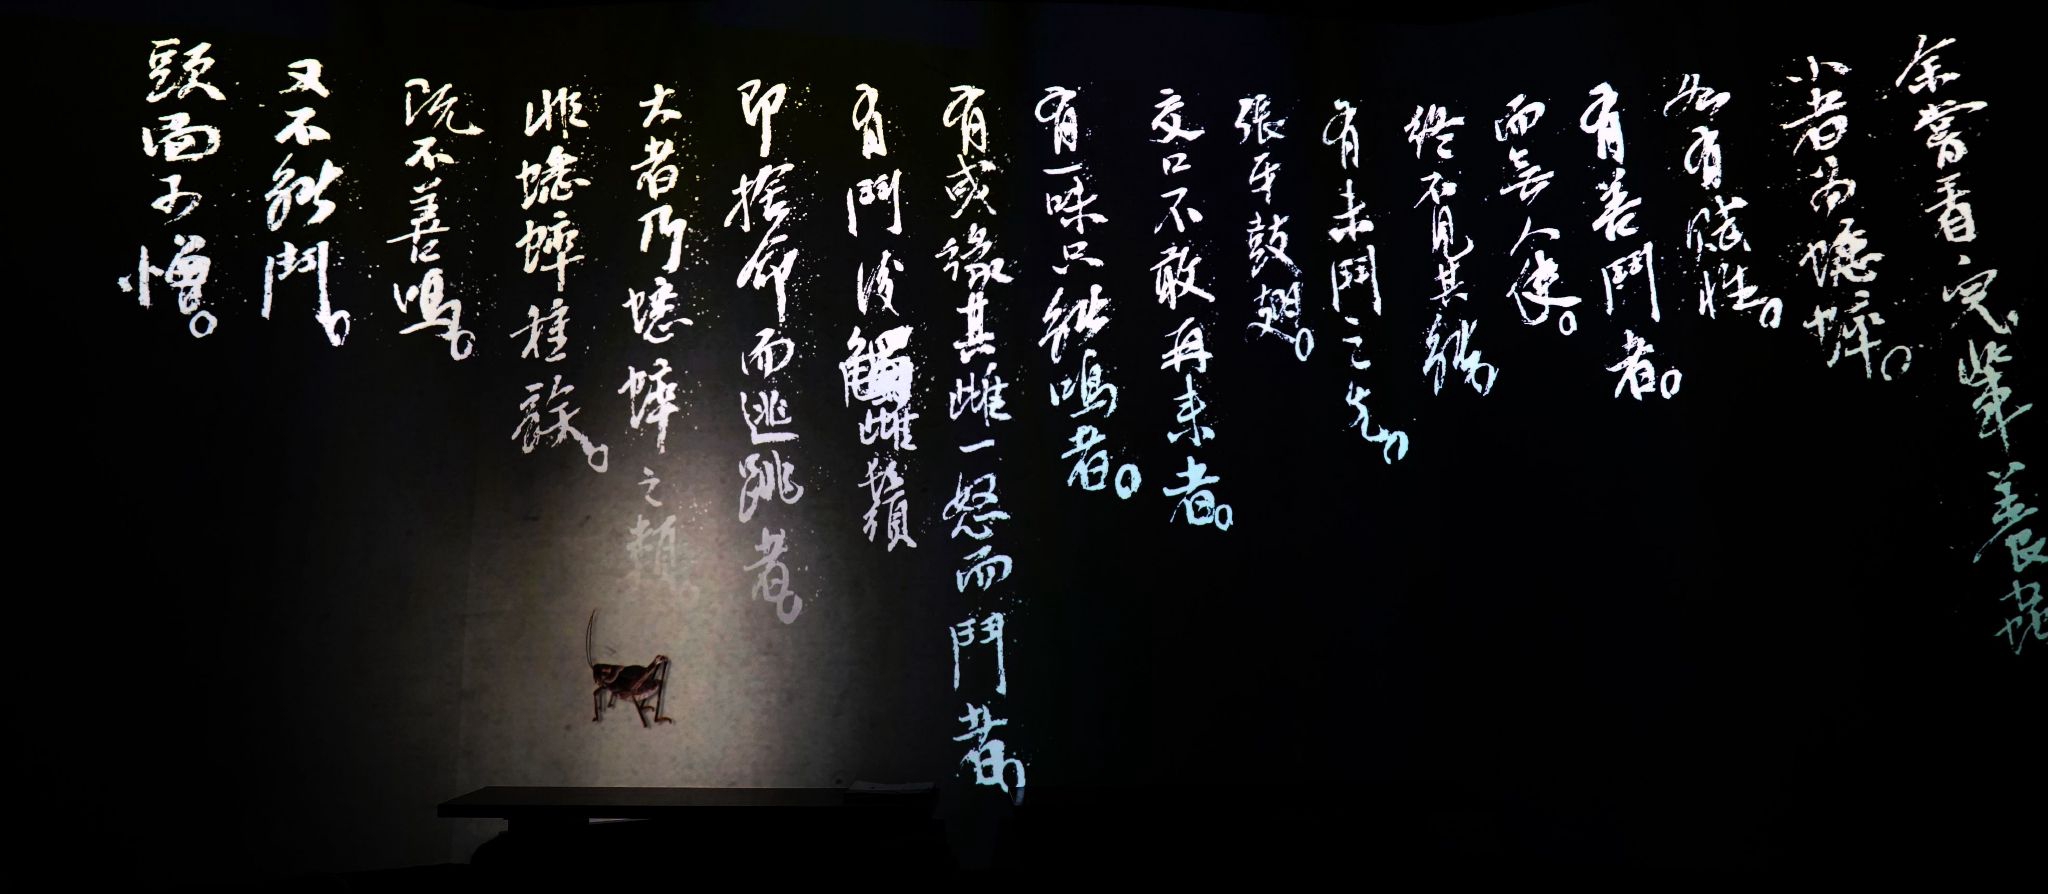 余嘗看兒輩養
小者為蟋蟀。
各有賦性。
有善鬥者。
而無人使。
終不見其能
有未鬥之先，
張牙鼓翅。
交口不敢再來者。
有一味只能鳴者。
有或緣其雌一怒而鬥者，
有鬥後觸雌鬚
即捨命而逃跳者。
大者乃蟋蟀之類。
非蟋蟀種餘。
既不善鳴。
又不能鬥。
頭面可憎。